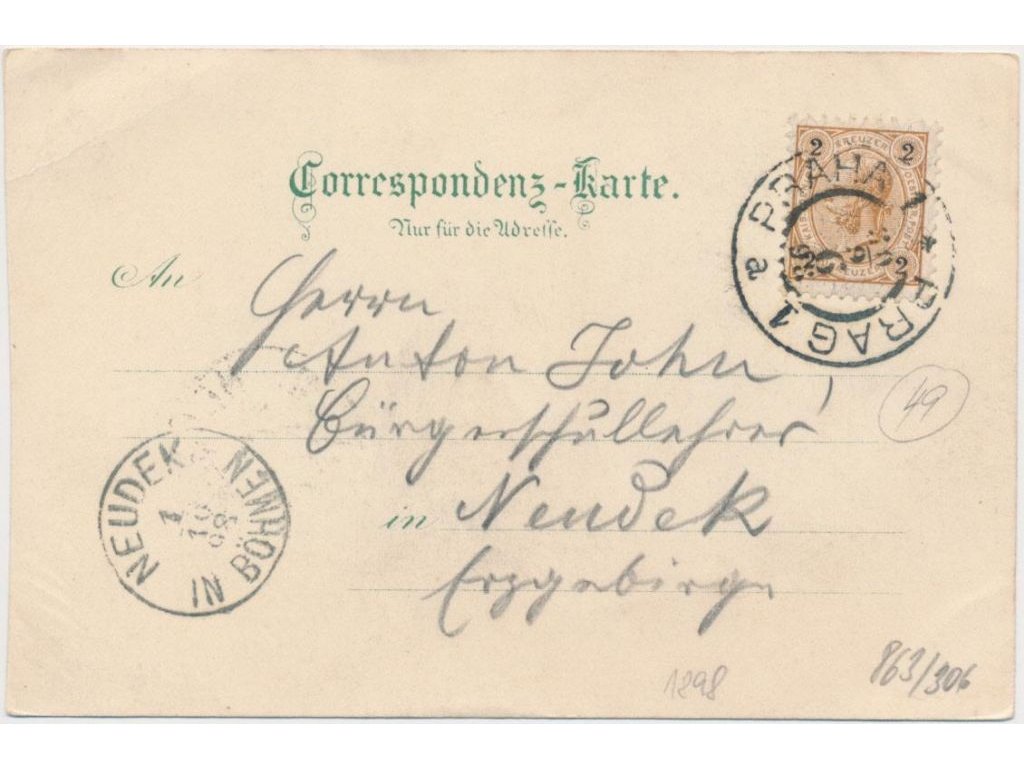 Correspondenz-Karte.
Nur für die Adresse.
2 KREUZER 2
PRAHA 1 * PRAG 1 a
An Herrn
Anton John
Bürgerschullehrer
in Neudek
Erzgebirge
49
NEUDEK IN BÖHMEN
1
10
98
1898
863/306